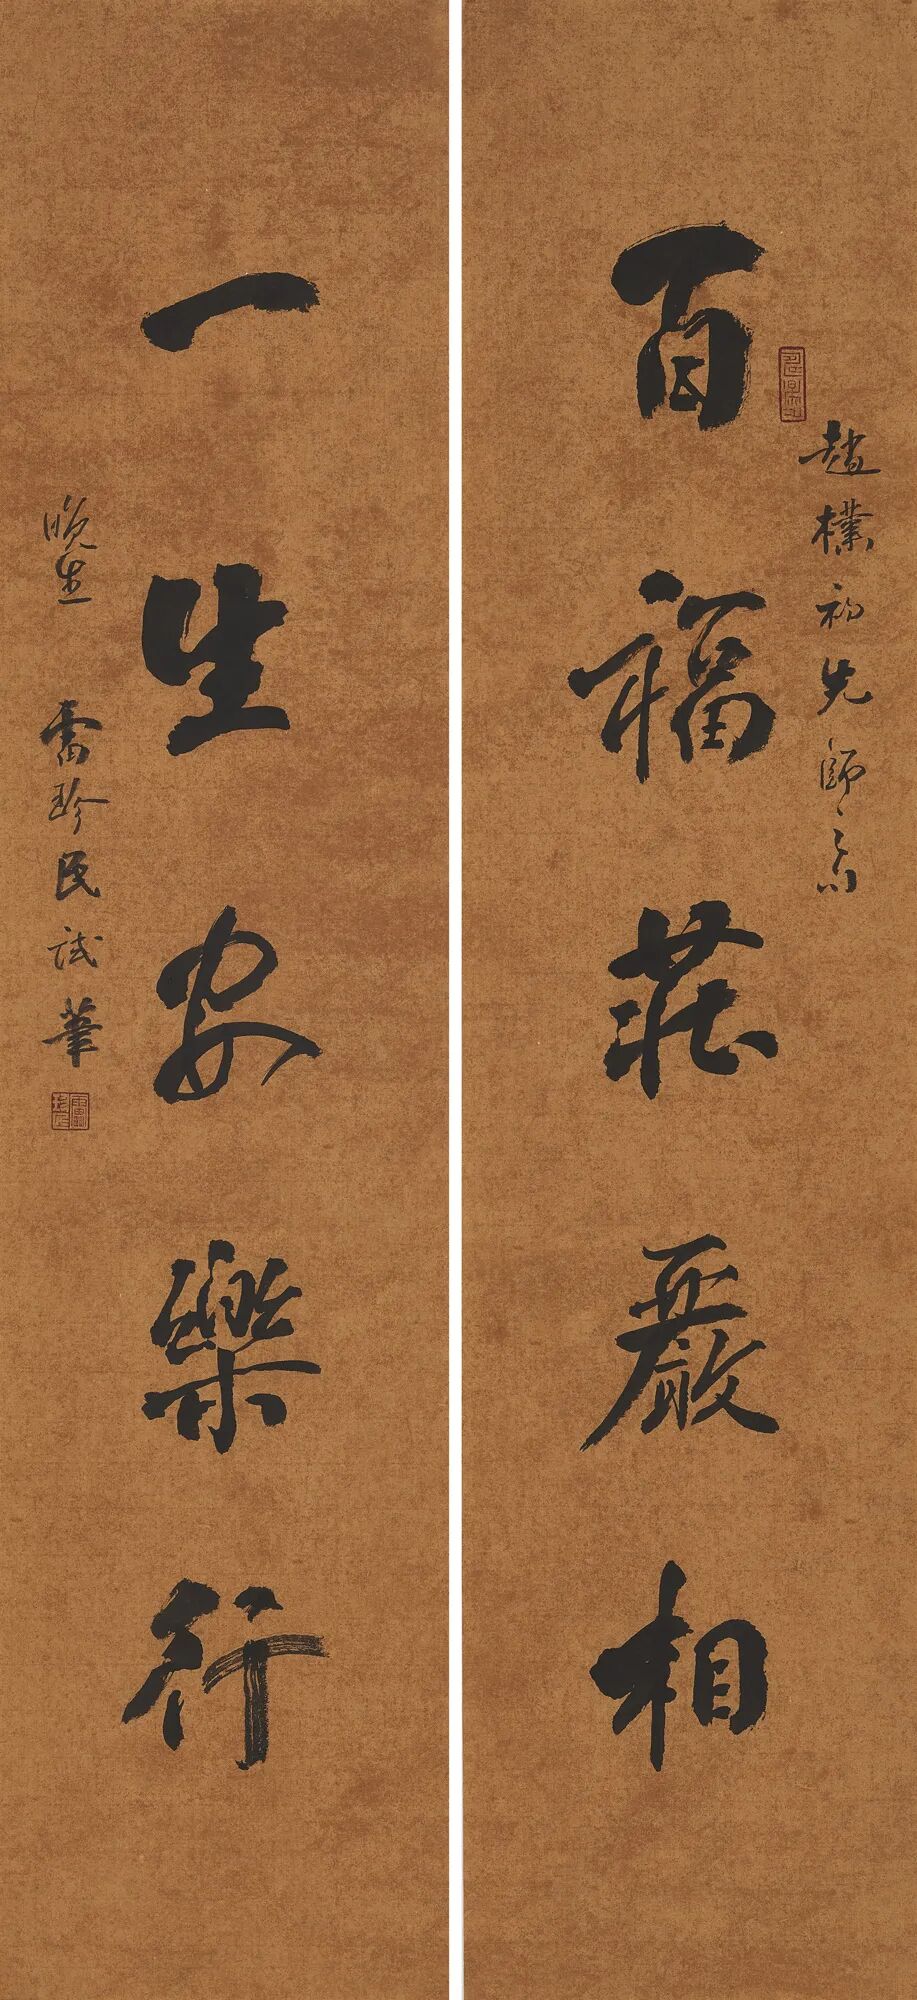 百福莊嚴相
趙樸初先師句
一生安樂行
晚生 雷珍民試筆